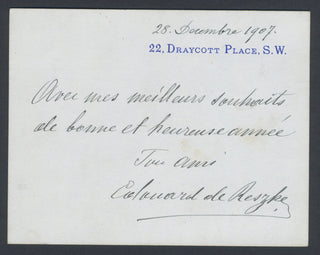 28. Decembre 1907.
22, DRAYCOTT PLACE, S.W.
Avec mes meilleurs souhaits
de bonne et heureuse année
Ton ami
Edouard de Reszke